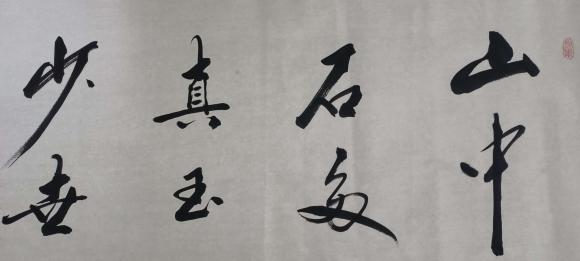 山中
石多
真玉
少世